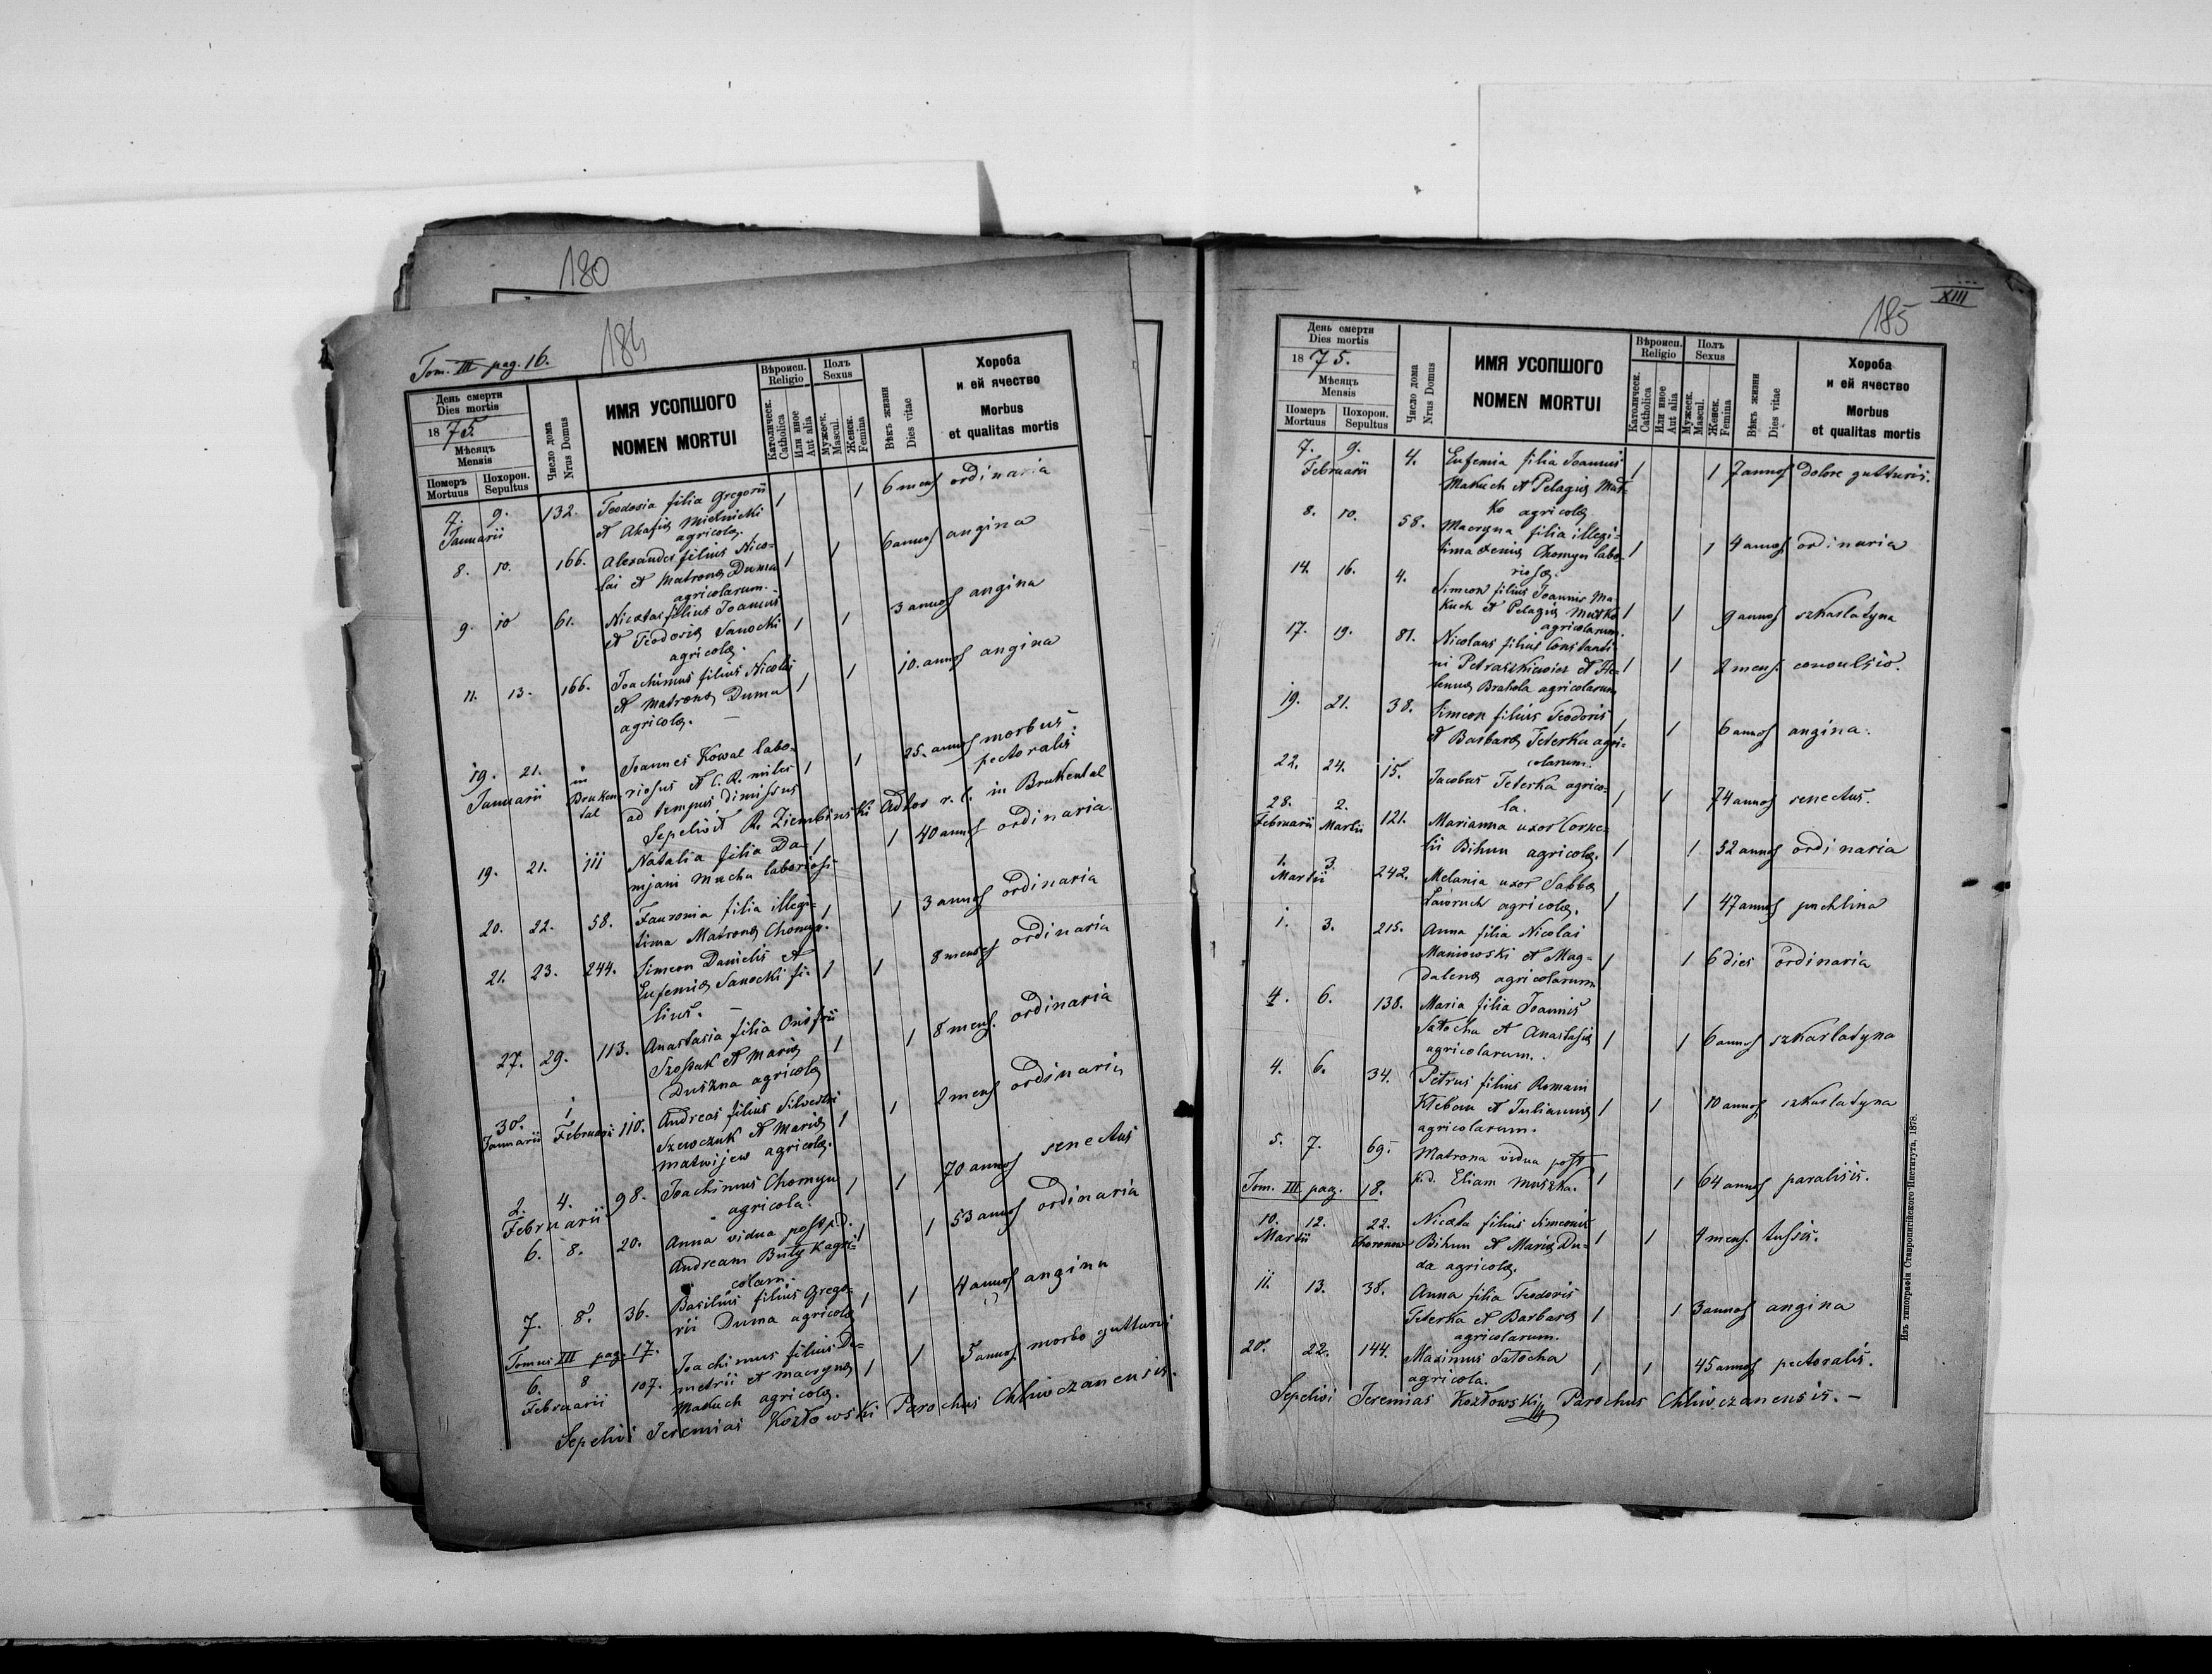 180
184
Tom. III pag. 16.
День смерти
Dies mortis
1875.
Мѣсяць
Mensis
Померъ
Mortuus
Похорон.
Sepultus
Число дома
Nrus Domus
ИМЯ УСОПШОГО
NOMEN MORTUI
Вѣроисп.
Religio
Католическ.
Catholica
Или иное
Aut alia
Полъ
Sexus
Мужеск.
Mascul.
Женск.
Femina
Вѣкъ жизни
Dies vitae
Хороба
и ей ячество
Morbus
et qualitas mortis
7. 9. 132. Teodosia filia Gregorii 1 1 6 mens ordinaria
Januarii et Akafiæ Mielnicki
agricolæ.
8. 10. 166. Alexander filius Nico- 1 1 6 annos angina
lai et Matronæ Duma
agricolarum.
9. 10 61. Nicetas filius Joannis 1 1 3 annos angina
et Teodosiæ Sanocki
agricolæ.
11. 13. 166. Joachimus filius Nicolai 1 1 10. annos angina
et Matronæ Duma
agricolæ. —
19. 21. in Joannes Kowal labo- 1 1 25. annos morbus
Januarii Bruken- riosus et C. R. miles pectoralis
tal ad tempus dimissus
Sepelivit R. Ziembinski Adlos r. l. in Brukental
19. 21. 111 Natalia filia Da- 1 1 40 annos ordinaria
mjani Mucha laboriosi
20. 22. 58. Fauronia filia illegi- 1 1 3 annos ordinaria
tima Matronæ Chomyn.
21. 23. 244. Simeon Danielis et 1 1 8 menses ordinaria
Eufemiæ Sanocki fi-
lius. —
27. 29. 113. Anastasia filia Onisfrii 1 1 8 mens. ordinaria
Szostak et Mariæ
Duszna agricolæ
30. 1 110. Andreas filius Silvestri 1 1 2 mens ordinaria
Januarii Februarii Szewczuk et Mariæ
Matwijew agricolæ.
2. 4. 98. Joachimus Chomyn 1 1 70 annos senectus
Februarii agricola.
6. 8. 20. Anna vidua post p.d. 1 1 53 annos ordinaria
Andream Buty k agri-
colam.
7. 8. 36. Basilius filius Grego- 1 1 4 annos angina
rii Duma agricolæ
Tomus III pag. 17.
6. 8 107. Joachimus filius De- 1 1 5 annos morbo gutturis
Februarii metrii et Macrynæ
Makuch agricolæ.
Sepelivi Jeremias Kozłowski Parochus Chliwczanensis.
XIII
185
День смерти
Dies mortis
1875.
Мѣсяць
Mensis
Померъ
Mortuus
Похорон.
Sepultus
Число дома
Nrus Domus
ИМЯ УСОПШОГО
NOMEN MORTUI
Вѣроисп.
Religio
Католическ.
Catholica
Или иное
Aut alia
Полъ
Sexus
Мужеск.
Mascul.
Женск.
Femina
Вѣкъ жизни
Dies vitae
Хороба
и ей ячество
Morbus
et qualitas mortis
7. 9. 4. Eufemia filia Joannis 1 1 7 annos dolore gutturis.
Februarii Makuch et Pelagiæ Mat-
ko agricolæ
8. 10. 58. Macryna filia illegi- 1 1 4 annos ordinaria
tima Xeniæ Chomyn labo-
riosæ.
14. 16. 4. Simeon filius Joannis Ma- 1 1 9 annos szkarlatyna
kuch et Pelagiæ Matko
agricolarum.
17. 19. 81. Nicolaus filius Constanti- 1 1 2 mens. convulsio.
ni Petraszkiewicz et He-
lenæ Brakola agricolarum
19. 21. 38. Simeon filius Teodoris 1 1 6 annos angina.
et Barbaræ Teterka agri-
colarum.
22. 24. 15. Jacobus Teterka agrico- 1 1 74 annos senectus.
la.
28. 2. 121. Marianna uxor Corne- 1 1 32 annos ordinaria
Februarii Martii lii Bihun agricolæ.
1. 3. 242. Melania uxor Sabbæ 1 1 47 annos puchlina
Martii Ławruch agricolæ.
1. 3. 215. Anna filia Nicolai 1 1 6 dies ordinaria
Maniowski et Mag-
dalenæ agricolarum
4. 6. 138. Maria filia Joannis 1 1 6 annos szkarlatyna
Satocha et Anastasiæ
agricolarum.
4. 6. 34. Petrus filius Romani 1 1 10 annos szkarlatyna
Kleban et Juliannæ
agricolarum.
5. 7. 69. Matrona vidua post 1 1 64 annos paralisis.
p.d. Eliam Muszka.
Tom. III pag. 18.
10. 12. 22. Niceta filius Simeonis 1 1 4 mens. tussis.
Martii Choronow Bihun et Mariæ Du-
da agricolæ.
11. 13. 38. Anna filia Teodoris 1 1 3 annos angina
Teterka et Barbaræ
agricolarum.
20. 22. 144. Maximus Satocha 1 1 45 annos pectoralis.
agricola.
Sepelivi Jeremias Kozłowski Parochus Chliwczanensis. —
Изъ типографіи Ставропигійского Института, 1878.